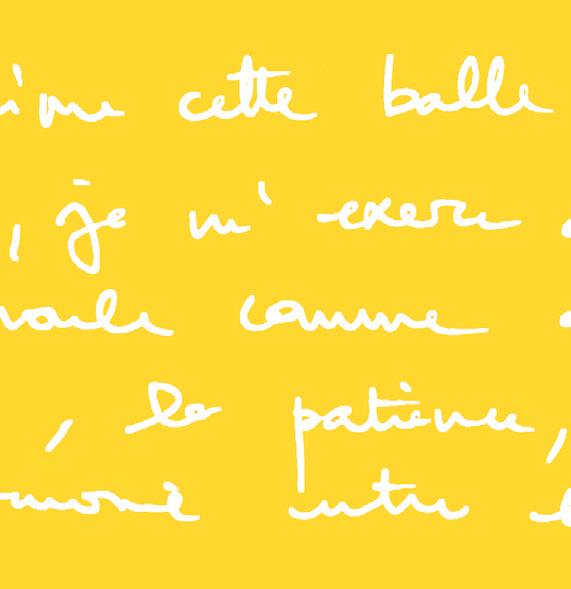 ime cette balle
, je m' exerce
vaile comme
, la patience,
monie entre